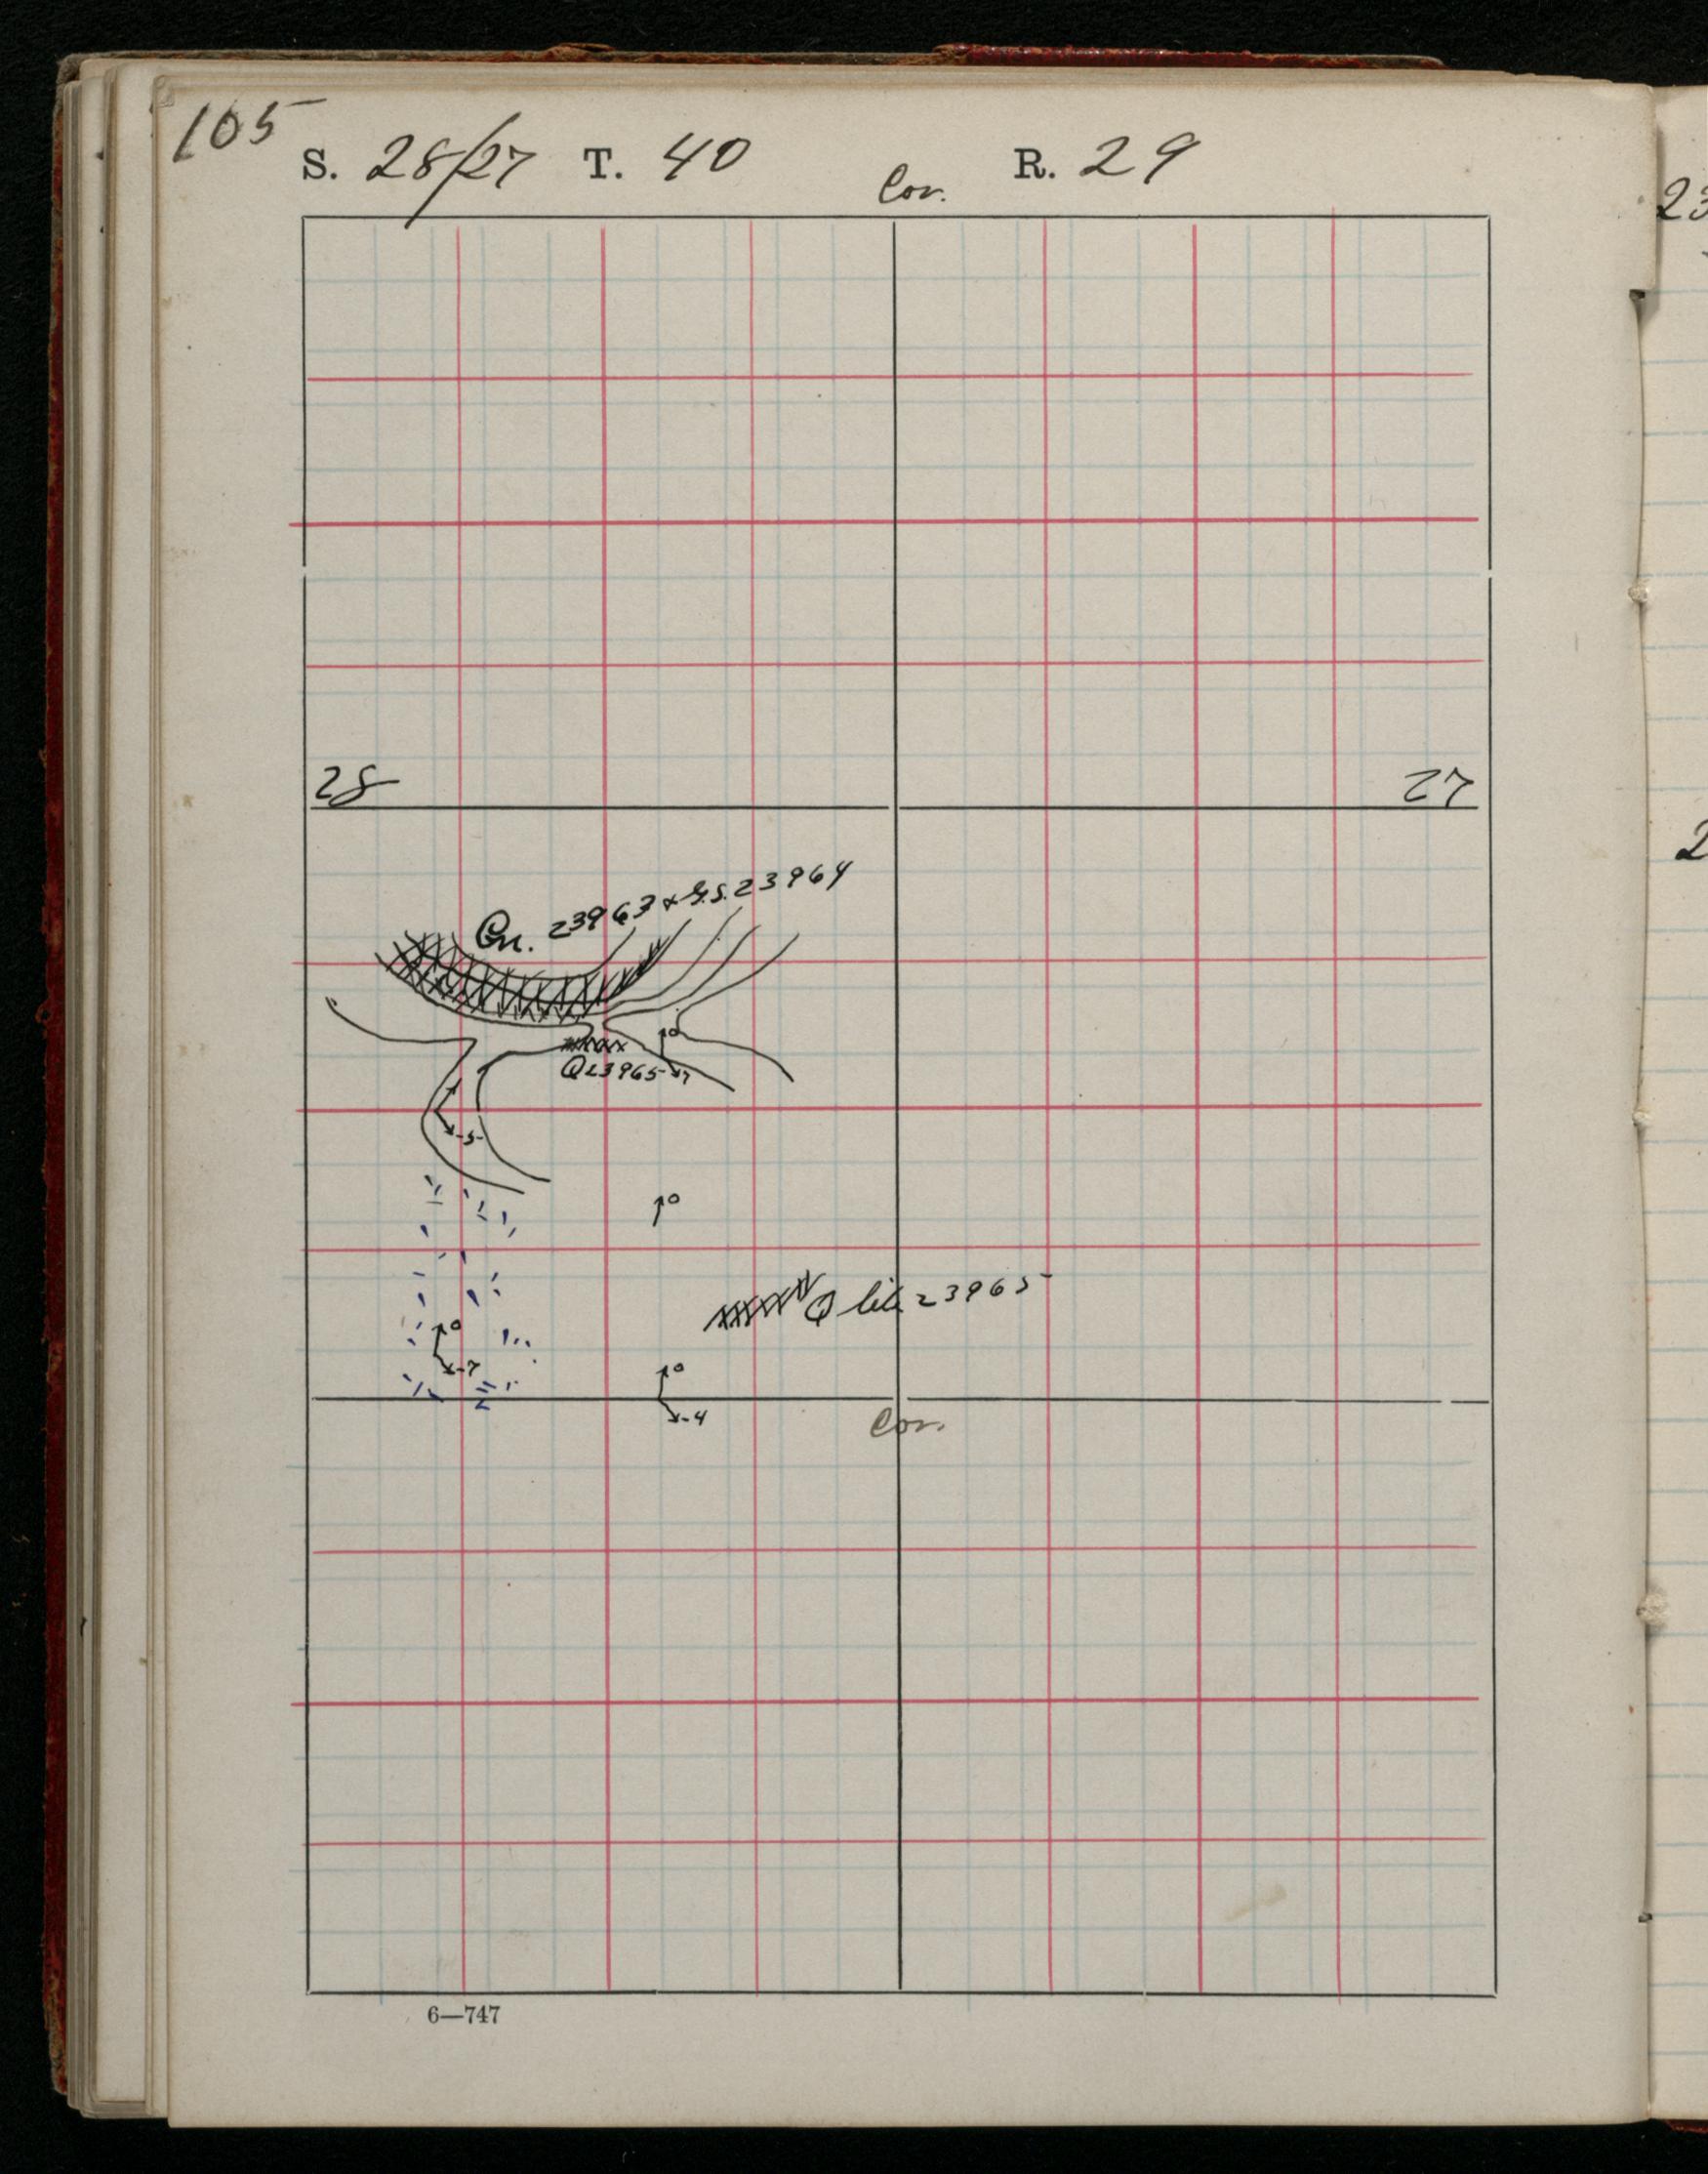 105
S. 28/27 T. 40 R. 29
Cor.
28 27
Gn. 23963 & G.S. 23964
0
Q 23965 -7
-5
0
Q like 23965
0
-7
0
-4
Cor.
6—747
23
2